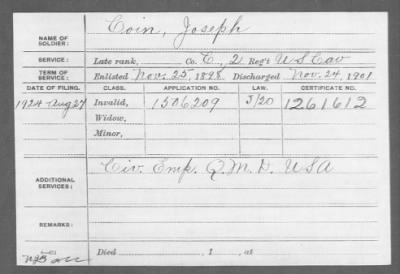 NAME OF SOLDIER: Coin, Joseph
SERVICE: Late rank, Co. C, 2 Reg't U S Cav
TERM OF SERVICE: Enlisted Nov. 25, 1898, Discharged Nov. 24, 1901
DATE OF FILING. CLASS. APPLICATION NO. LAW. CERTIFICATE NO.
1924 Aug 27 Invalid, 1506209 J/20 1261612
Widow,
Minor,
ADDITIONAL SERVICES: Civ. Emp. Q. M. D. USA
REMARKS:
Died , 1 , at